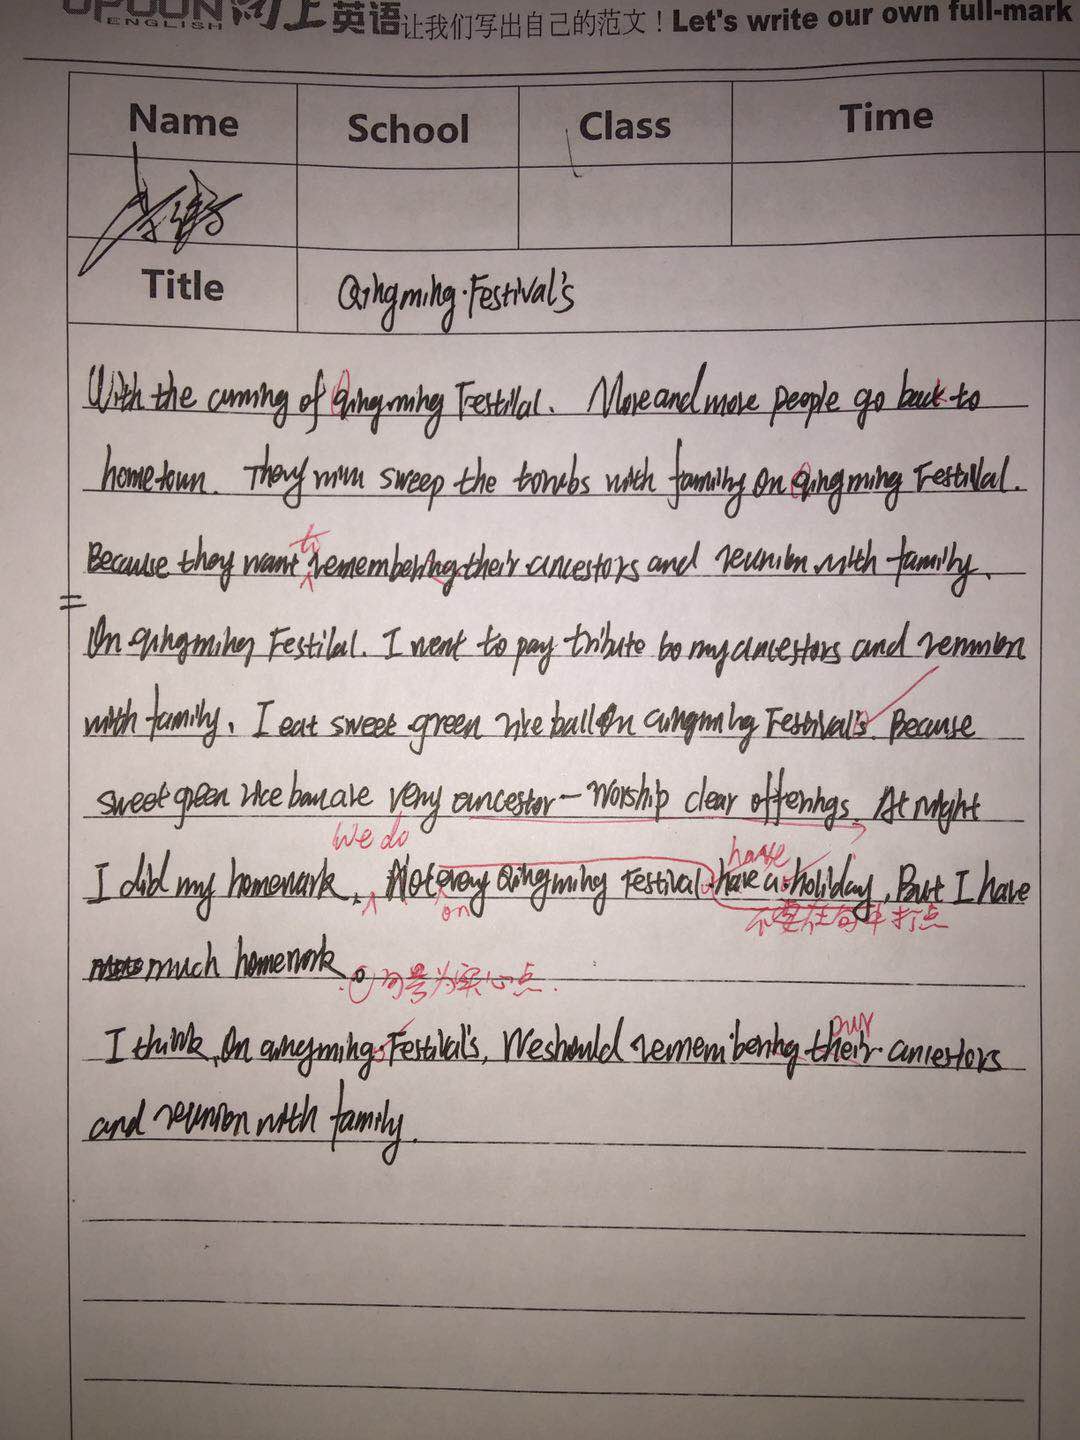 UPOON 向上英语 让我们写出自己的范文！Let's write our own full-mark
ENGLISH
Name School Class Time
Title Qingming·Festival's
With the coming of Qingming Festival. More and more people go back to
hometown. They sweep the tombs with family On Qingming Festival.
to
Because they want remembering their ancestors and reunion with family.
On qingming Festival. I went to pay tribute to my ancestors and reunion
with family. I eat sweet green rice ball On qingming Festival's. Because
sweet green rice are very ancestor-worship clear offerings. At night
we do have
I did my homework. Not every Qingming Festival. have a·holiday, But I have
on 不要在句中打点
much homework.
句号为实心点.
our
I think, On qingming·Festival's, We should remembering their·ancestors
and reunion with family.